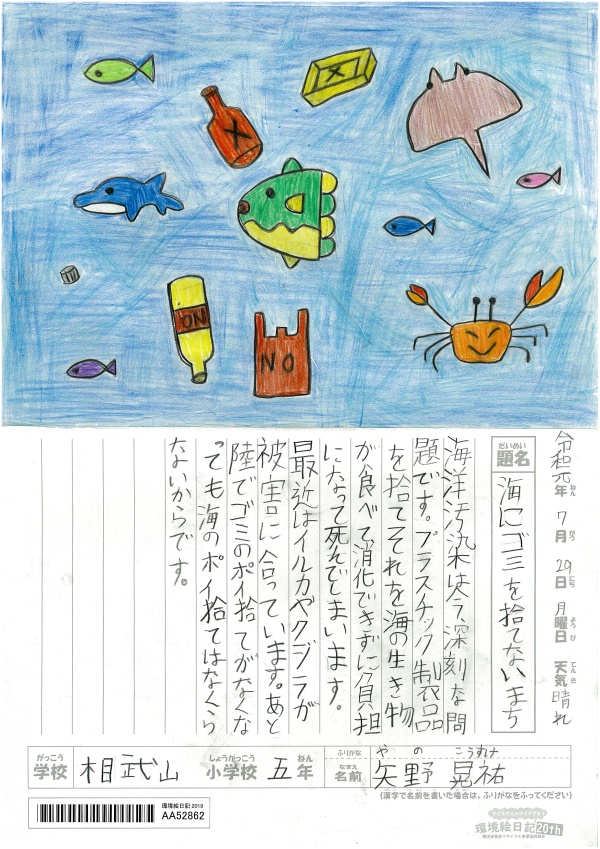 X
X
NO
NO
令和元年 7月 29日 月曜日 天気 晴れ
ねん がつ にち ようび てんき
だいめい
題名
海にゴミを捨てないまち
海洋汚染は今、深刻な問
題です。プラスチック製品
を捨てそれを海の生き物
が食べて、消化できずに負担
になって死んでしまいます。
最近はイルカやクジラが
被害に合っています。あと
陸でゴミのポイ捨てがなくな
っても海のポイ捨てはなくら
ないからです。
がっこう しょうがっこう ねん
学校 相武山 小学校 五年
ふりがな やの こうすけ
なまえ
名前 矢野 晃祐
(漢字で名前を書いた場合は、ふりがなをふってください)
環境絵日記2019
AA52862
環境絵日記20th